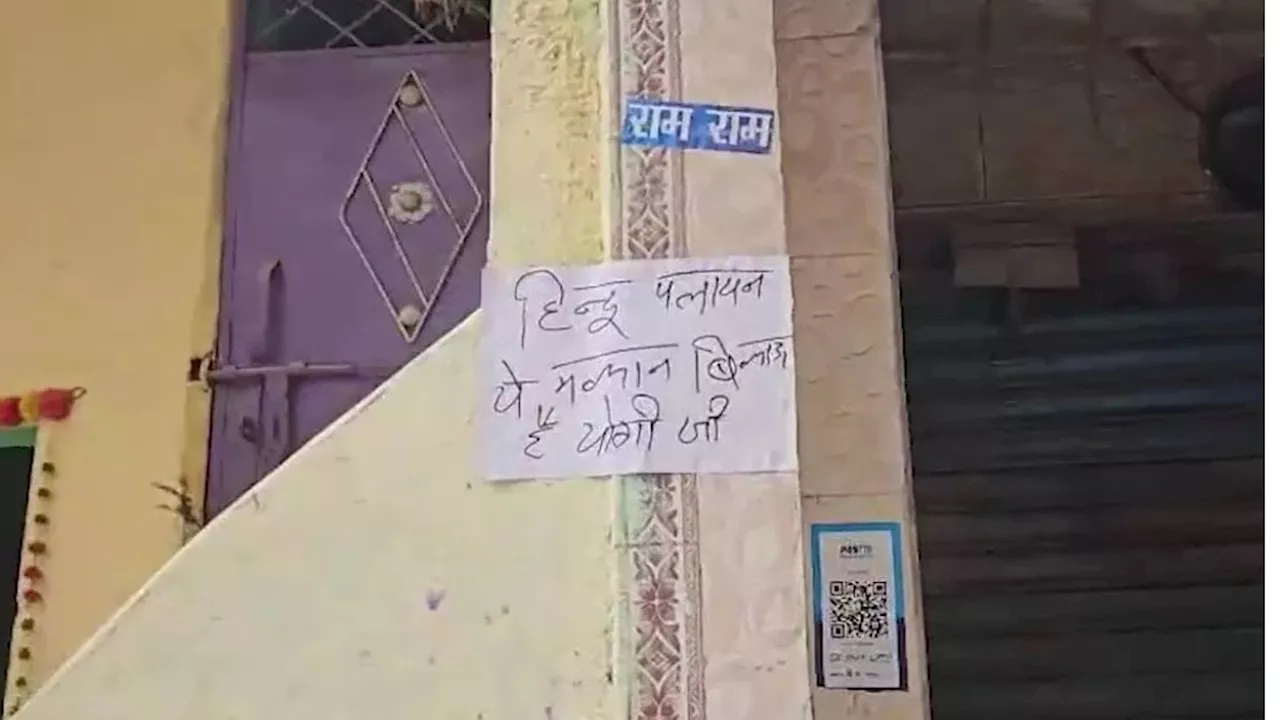 राम राम
हिन्दू पलायन
ये मकान बिकाऊ
है योगी जी
Paytm